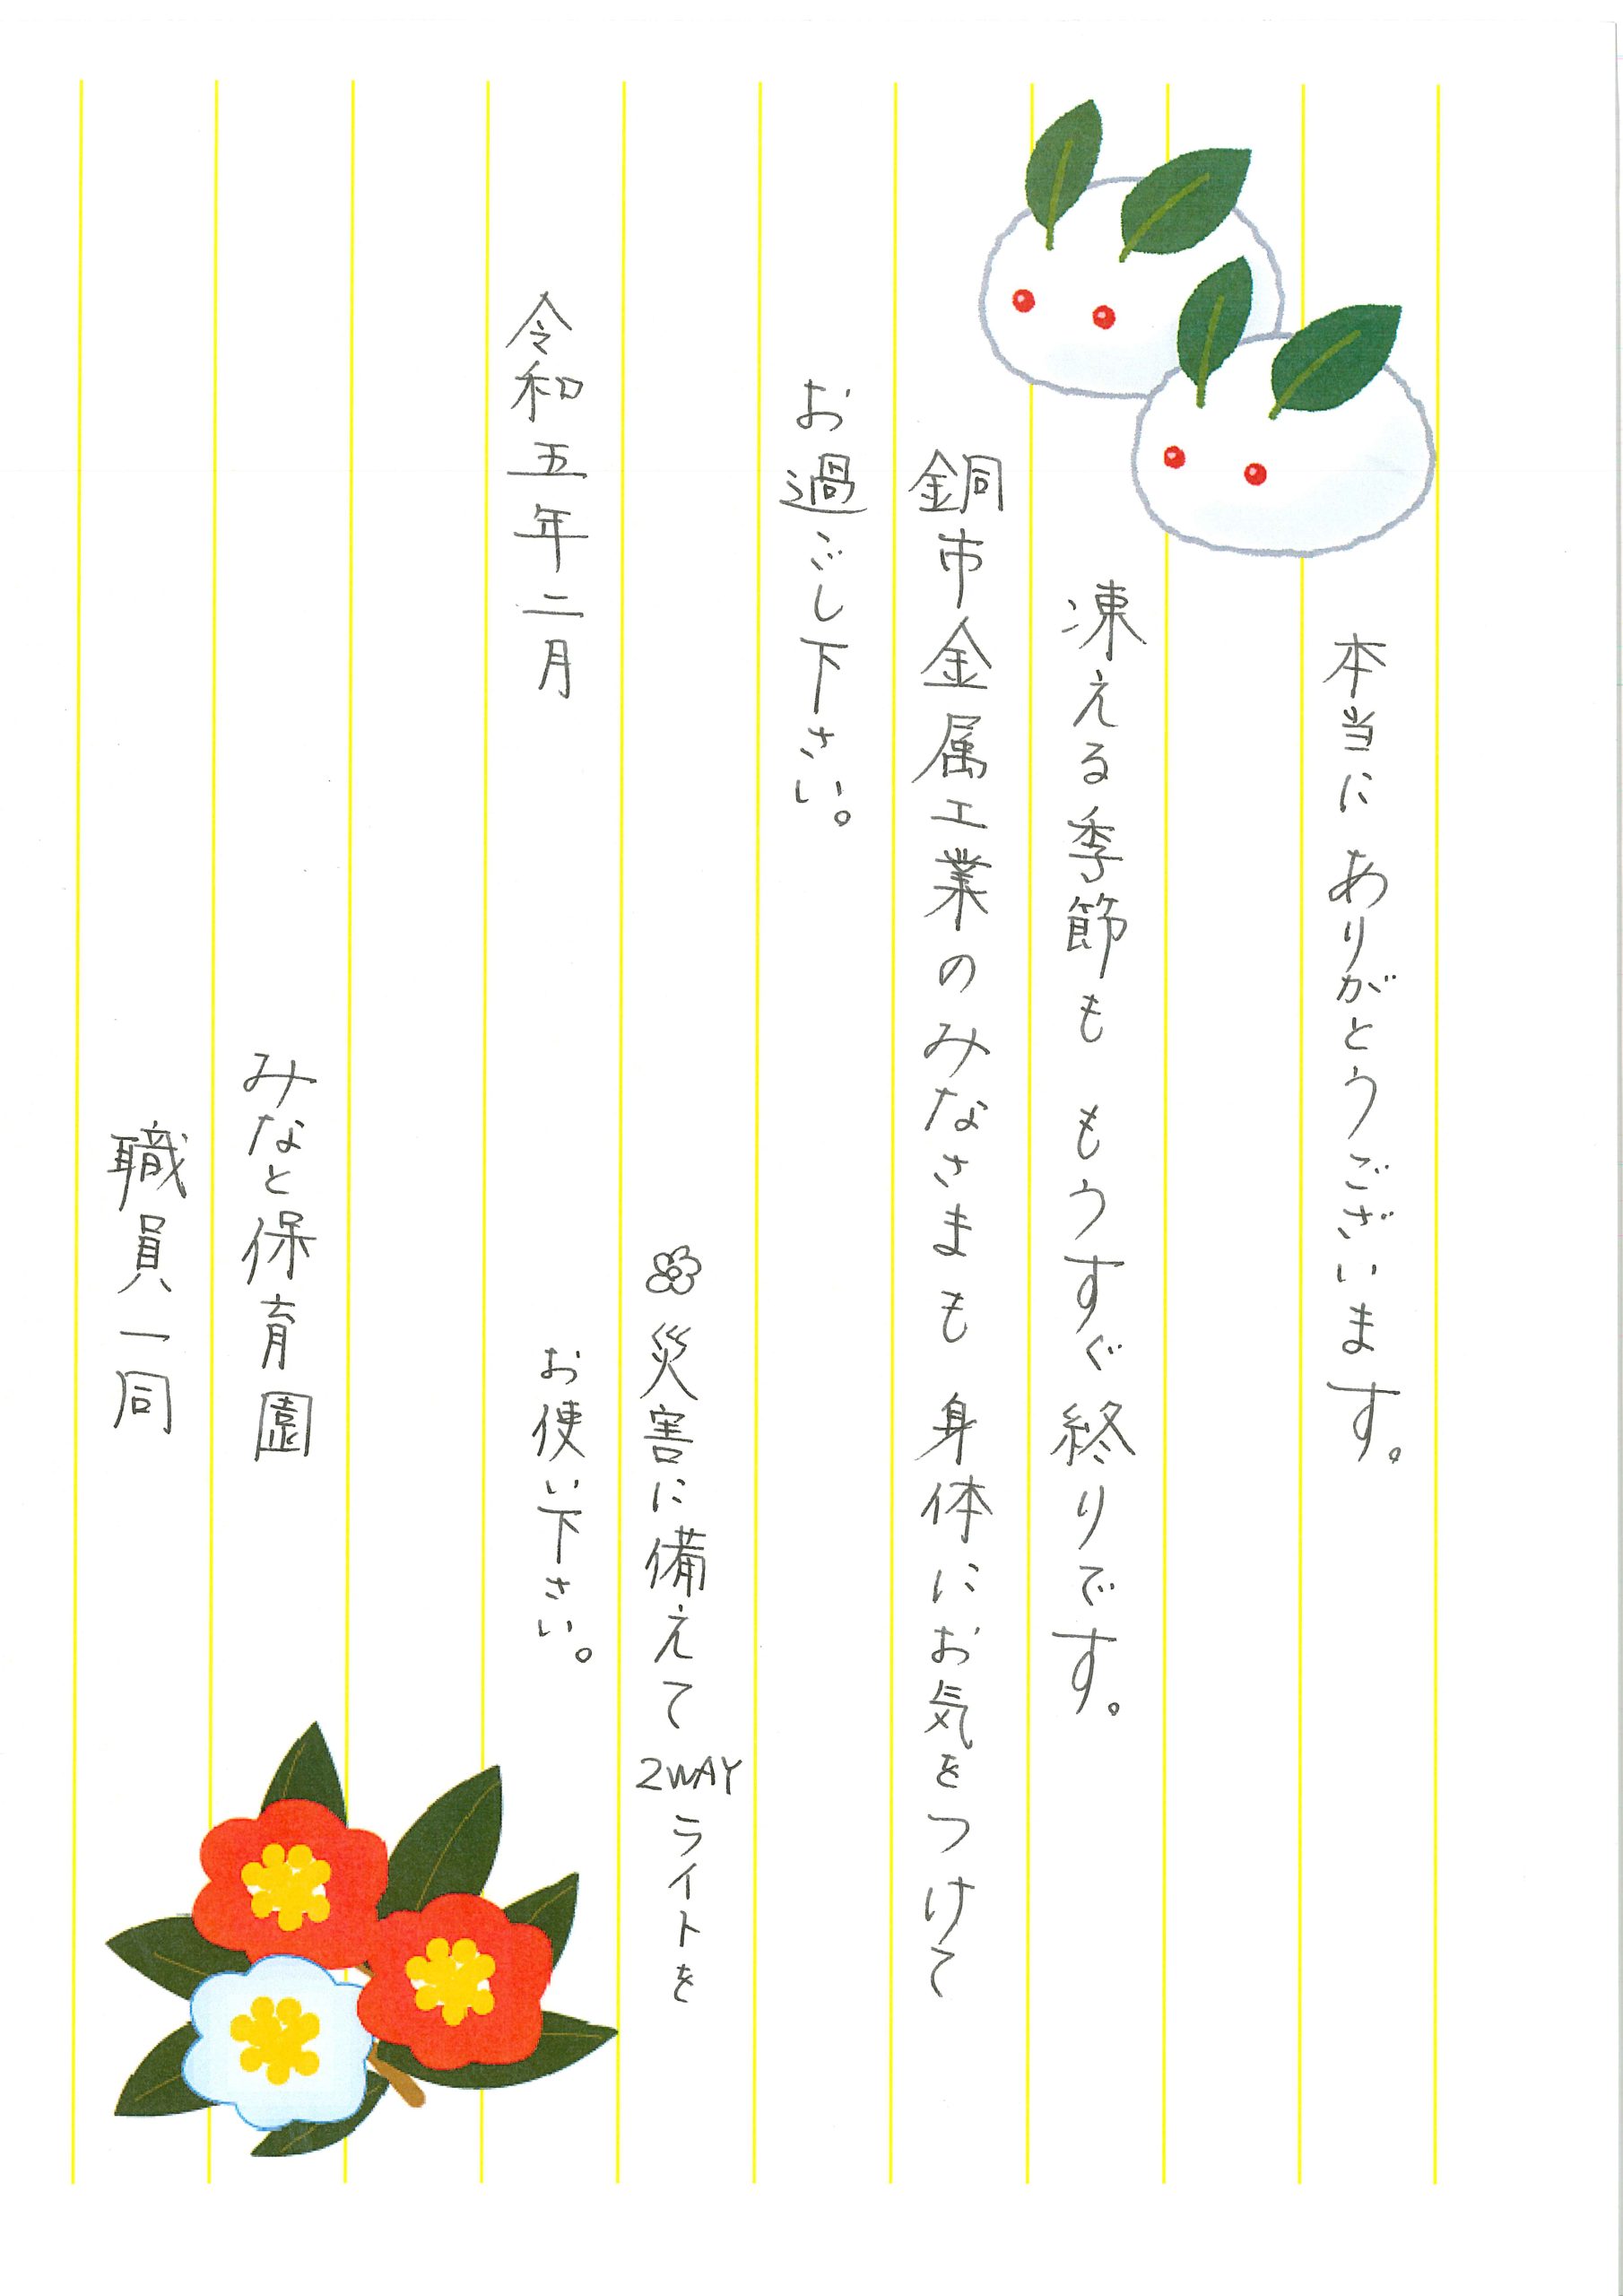 本当に ありがとうございます。
凍える季節も もうすぐ終りです。
銅市金属工業のみなさまも 身体にお気をつけて
お過ごし下さい。
災害に備えて 2WAYライトを
お使い下さい。
令和五年二月
みなと保育園
職員一同